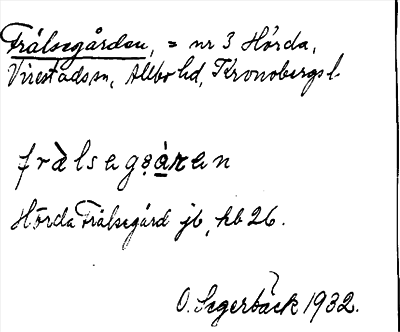 Frälsegården, = nr 3 Hörda,
Virestads sn, Allbo hd, Kronobergs l.
frälsegạ̊ṛen
Hörda Frälsegård jb, hb 26.
O. Segerbäck 1932.